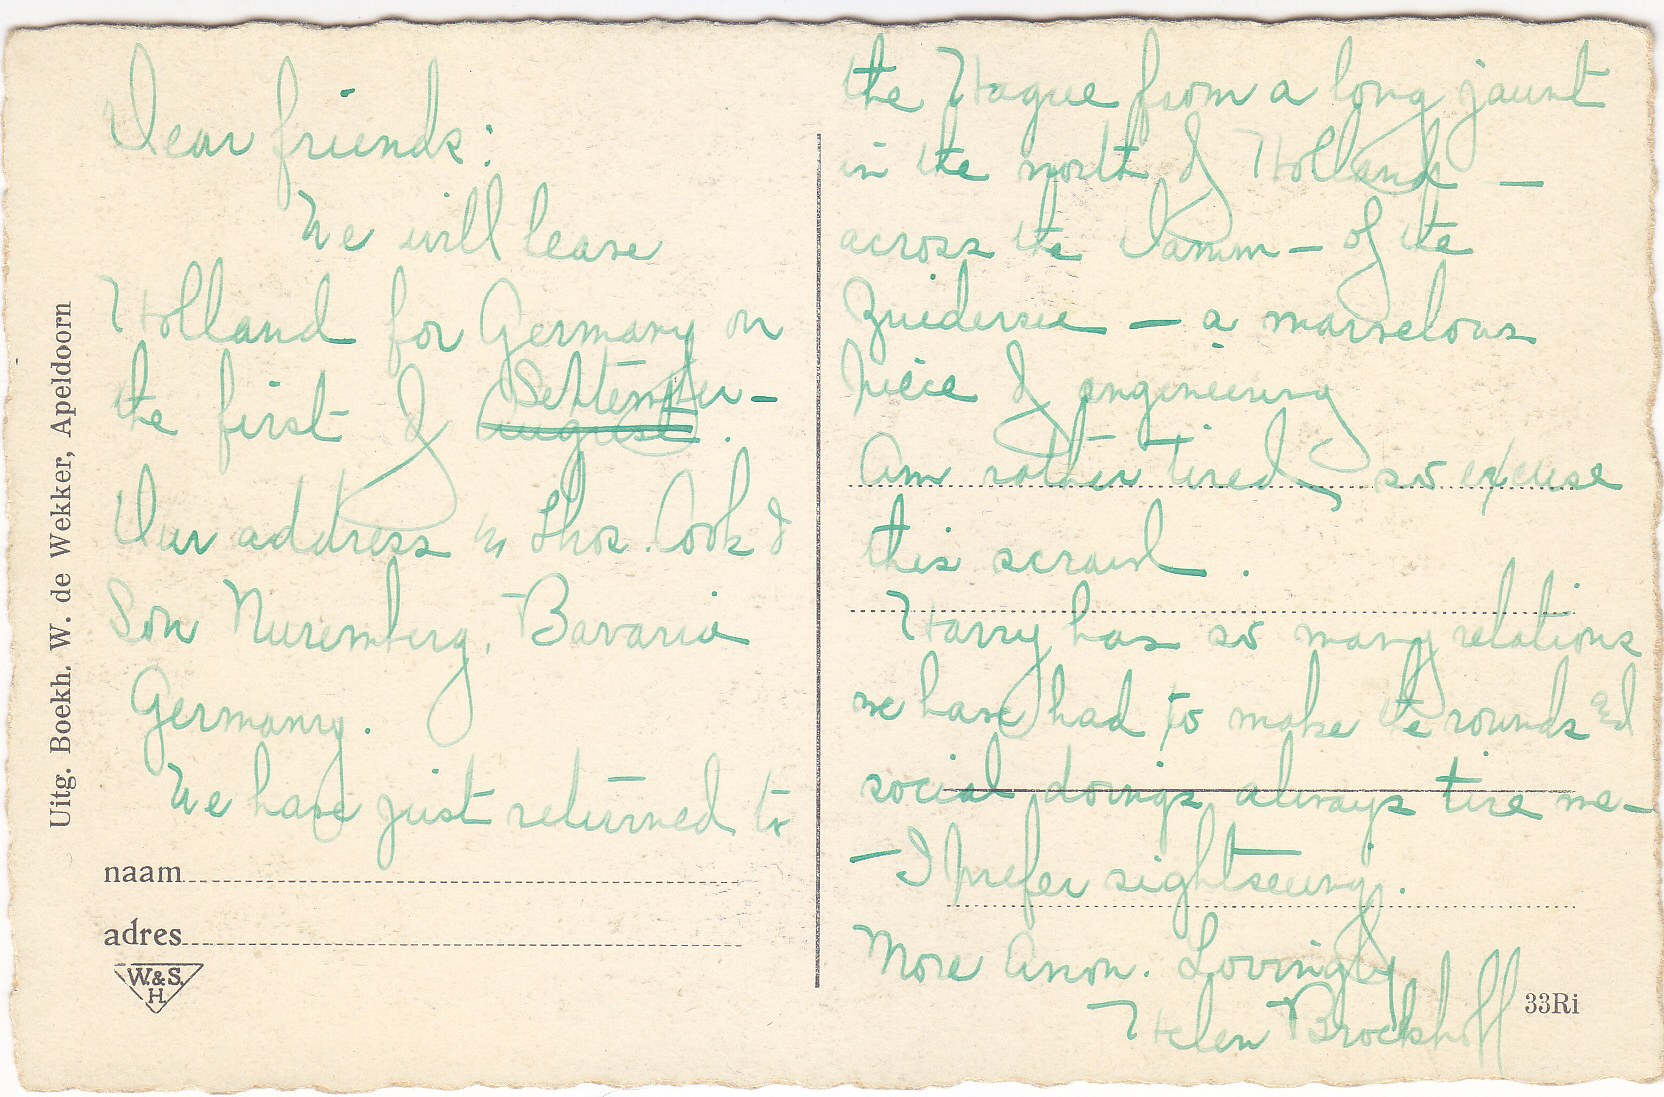 Dear friends:
We will leave
Holland for Germany on
the first of August September-.
Our address is Thos. Cook &
Son Nuremberg, Bavaria
Germany.
We have just returned to
the Hague from a long jaunt
in the north of Holland —
across the Damm — of the
Zuidersee — a marvelous
piece of engineering
Am rather tired, so excuse
this scrawl.
Harry has so many relations
we have had to make the rounds and
social doings always tire me -
- I prefer sightseeing.
More Anon. Lovingly
Helen Brockhoff
Uitg. Boekh. W. de Wekker, Apeldoorn
naam
adres
W.&S.
H.
33Ri